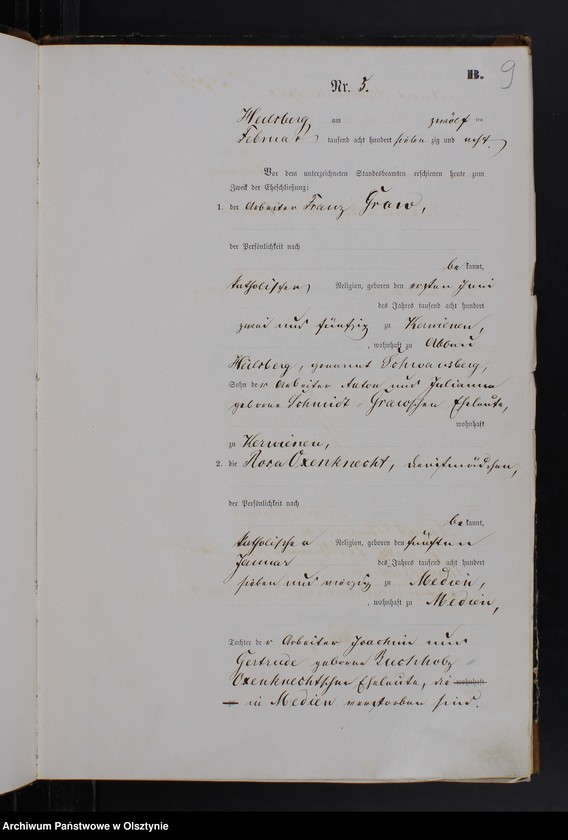 B. 9
Nr. 5.
Heilsberg am zwölf ten
Februar tausend acht hundert sieben zig und acht.
Vor dem unterzeichneten Standesbeamten erschienen heute zum
Zweck der Eheschließung:
1. der Arbeiter Franz Graw,
der Persönlichkeit nach
be kannt,
katholischer Religion, geboren den ersten Juni
des Jahres tausend acht hundert
zwei und fünfzig zu Kerwienen,
, wohnhaft zu Abbau
Heilsberg, genannt Schwansberg,
Sohn der Arbeiter Anton und Julianna
geborne Schmidt - Grawschen Eheleute,
wohnhaft
zu Kerwienen,
2. die Rosa Oxenknecht, Dienstmädchen,
der Persönlichkeit nach
be kannt,
katholischer Religion, geboren den fünften
Januar des Jahres tausend acht hundert
sieben und vierzig zu Medien,
, wohnhaft zu Medien,
Tochter der Arbeiter Joachim und
Gertrude geborne Buchholz =
Oxenknechtschen Eheleute, die wohnhaft
in Medien verstorben sind.
Archiwum Państwowe w Olsztynie